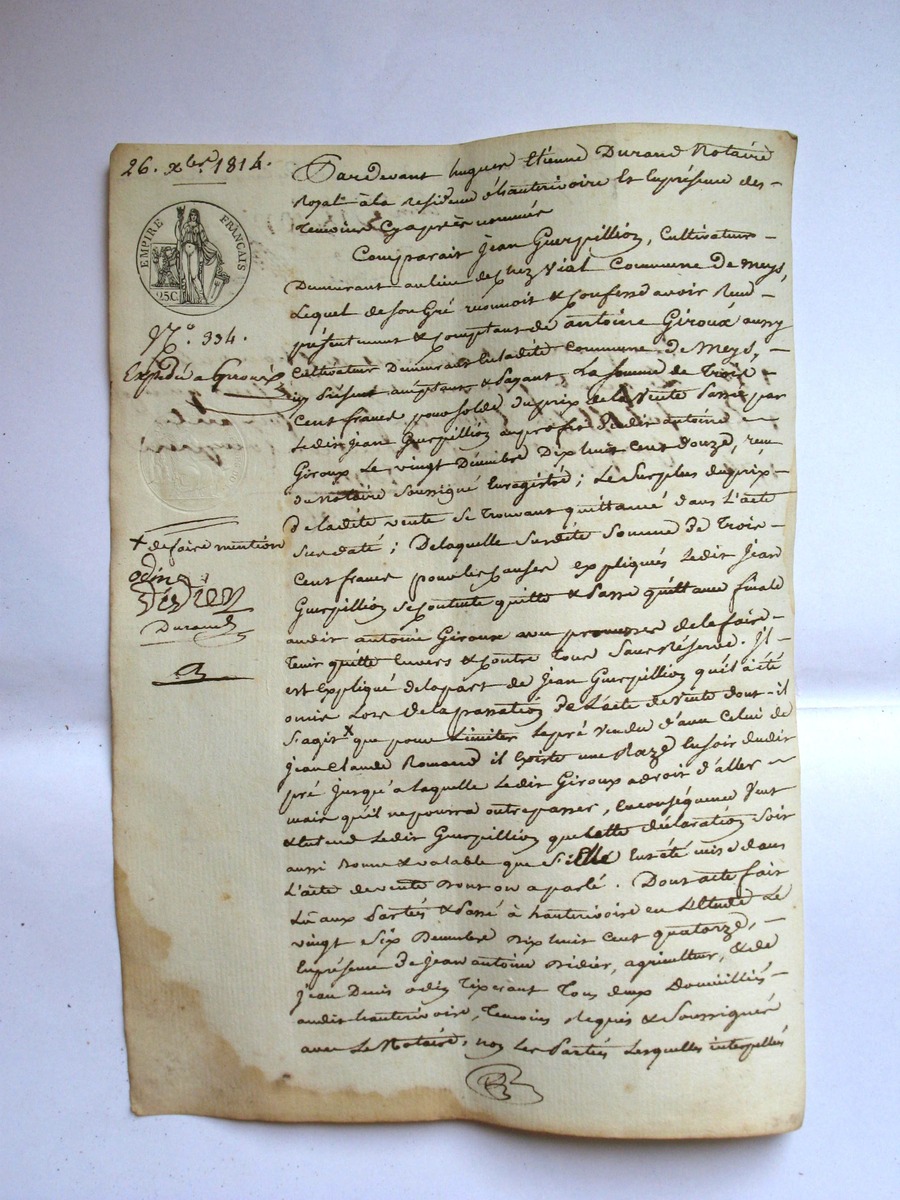 26. xbre. 1814.
EMPIRE FRANÇAIS
25 C.
N.o 334.
Expédié a Giroux
+ de faire mention
odin
Didier
Durand
Pardevant hugues Etienne Durand Notaire
Royal à la residence d'hauterivoire Et Enprésence des
temoins Cyaprès nommés
Comparait Jean Guerpillion, Cultivateur
Demeurant au lieu de chez Vial Commune De meys,
Lequel de Son Gré reconnoit & Confesse avoir Reçu
présentement & Comptant de antoine Giroux aussy
Cultivateur Demeurant En ladite Commune de Meys,
icy Présent acceptant & Payant, La Somme de Trois
Cent francs pour solde du prix de la Vente Passé par
Ledit Jean Guerpillion au profit dudit antoine
Giroux Le vingt Décembre Dix huit Cent Douze, reçu
du Notaire Soussigné Enregistré ; Le Surplus duprix
de la dite vente Se Trouvant quittancé dans L'acte
Susdaté ; De laquelle Susdite Somme de Trois
Cent francs pour les Causes expliqués Ledit Jean
Guerpillion Se Contente quitte & Passe quittance finale
audit antoine Giroux avec promesse de le faire
Tenir quitte Envers & Contre Tous Sans Réserve. Il
est Expliqué de la part de Jean Guerpillion qu'il a été
omis Lors de la passation de L'acte de Vente dont il
S'agit + que pour Limiter Le pré Vendu d'avec Celui de
Jean Claude Romand il Existe une Raze En soir dudit
pré Jusqu'à laquelle Ledit Giroux a droit d'aller
mais qu'il ne pourra outrepasser, En conséquence Veut
& Entend Ledit Guerpillion que Cette déclaration Soit
aussi Bonne & valable que Si Elle Eut été mise dans
L'acte de vente Dont on a parlé. Dont acte fait
Lû aux Parties & Passé à hauterivoire en L'Etude Le
vingt Six Décembre Dix huit Cent quatorze,
En présence de Jean antoine Didier, agriculteur, & de
Jean Denis odin Tixerant Tous deux Domiciliés
audit hauterivoire, Temoins Requis & Soussignés
avec Le Notaire, non Les Parties Lesquelles interpellés